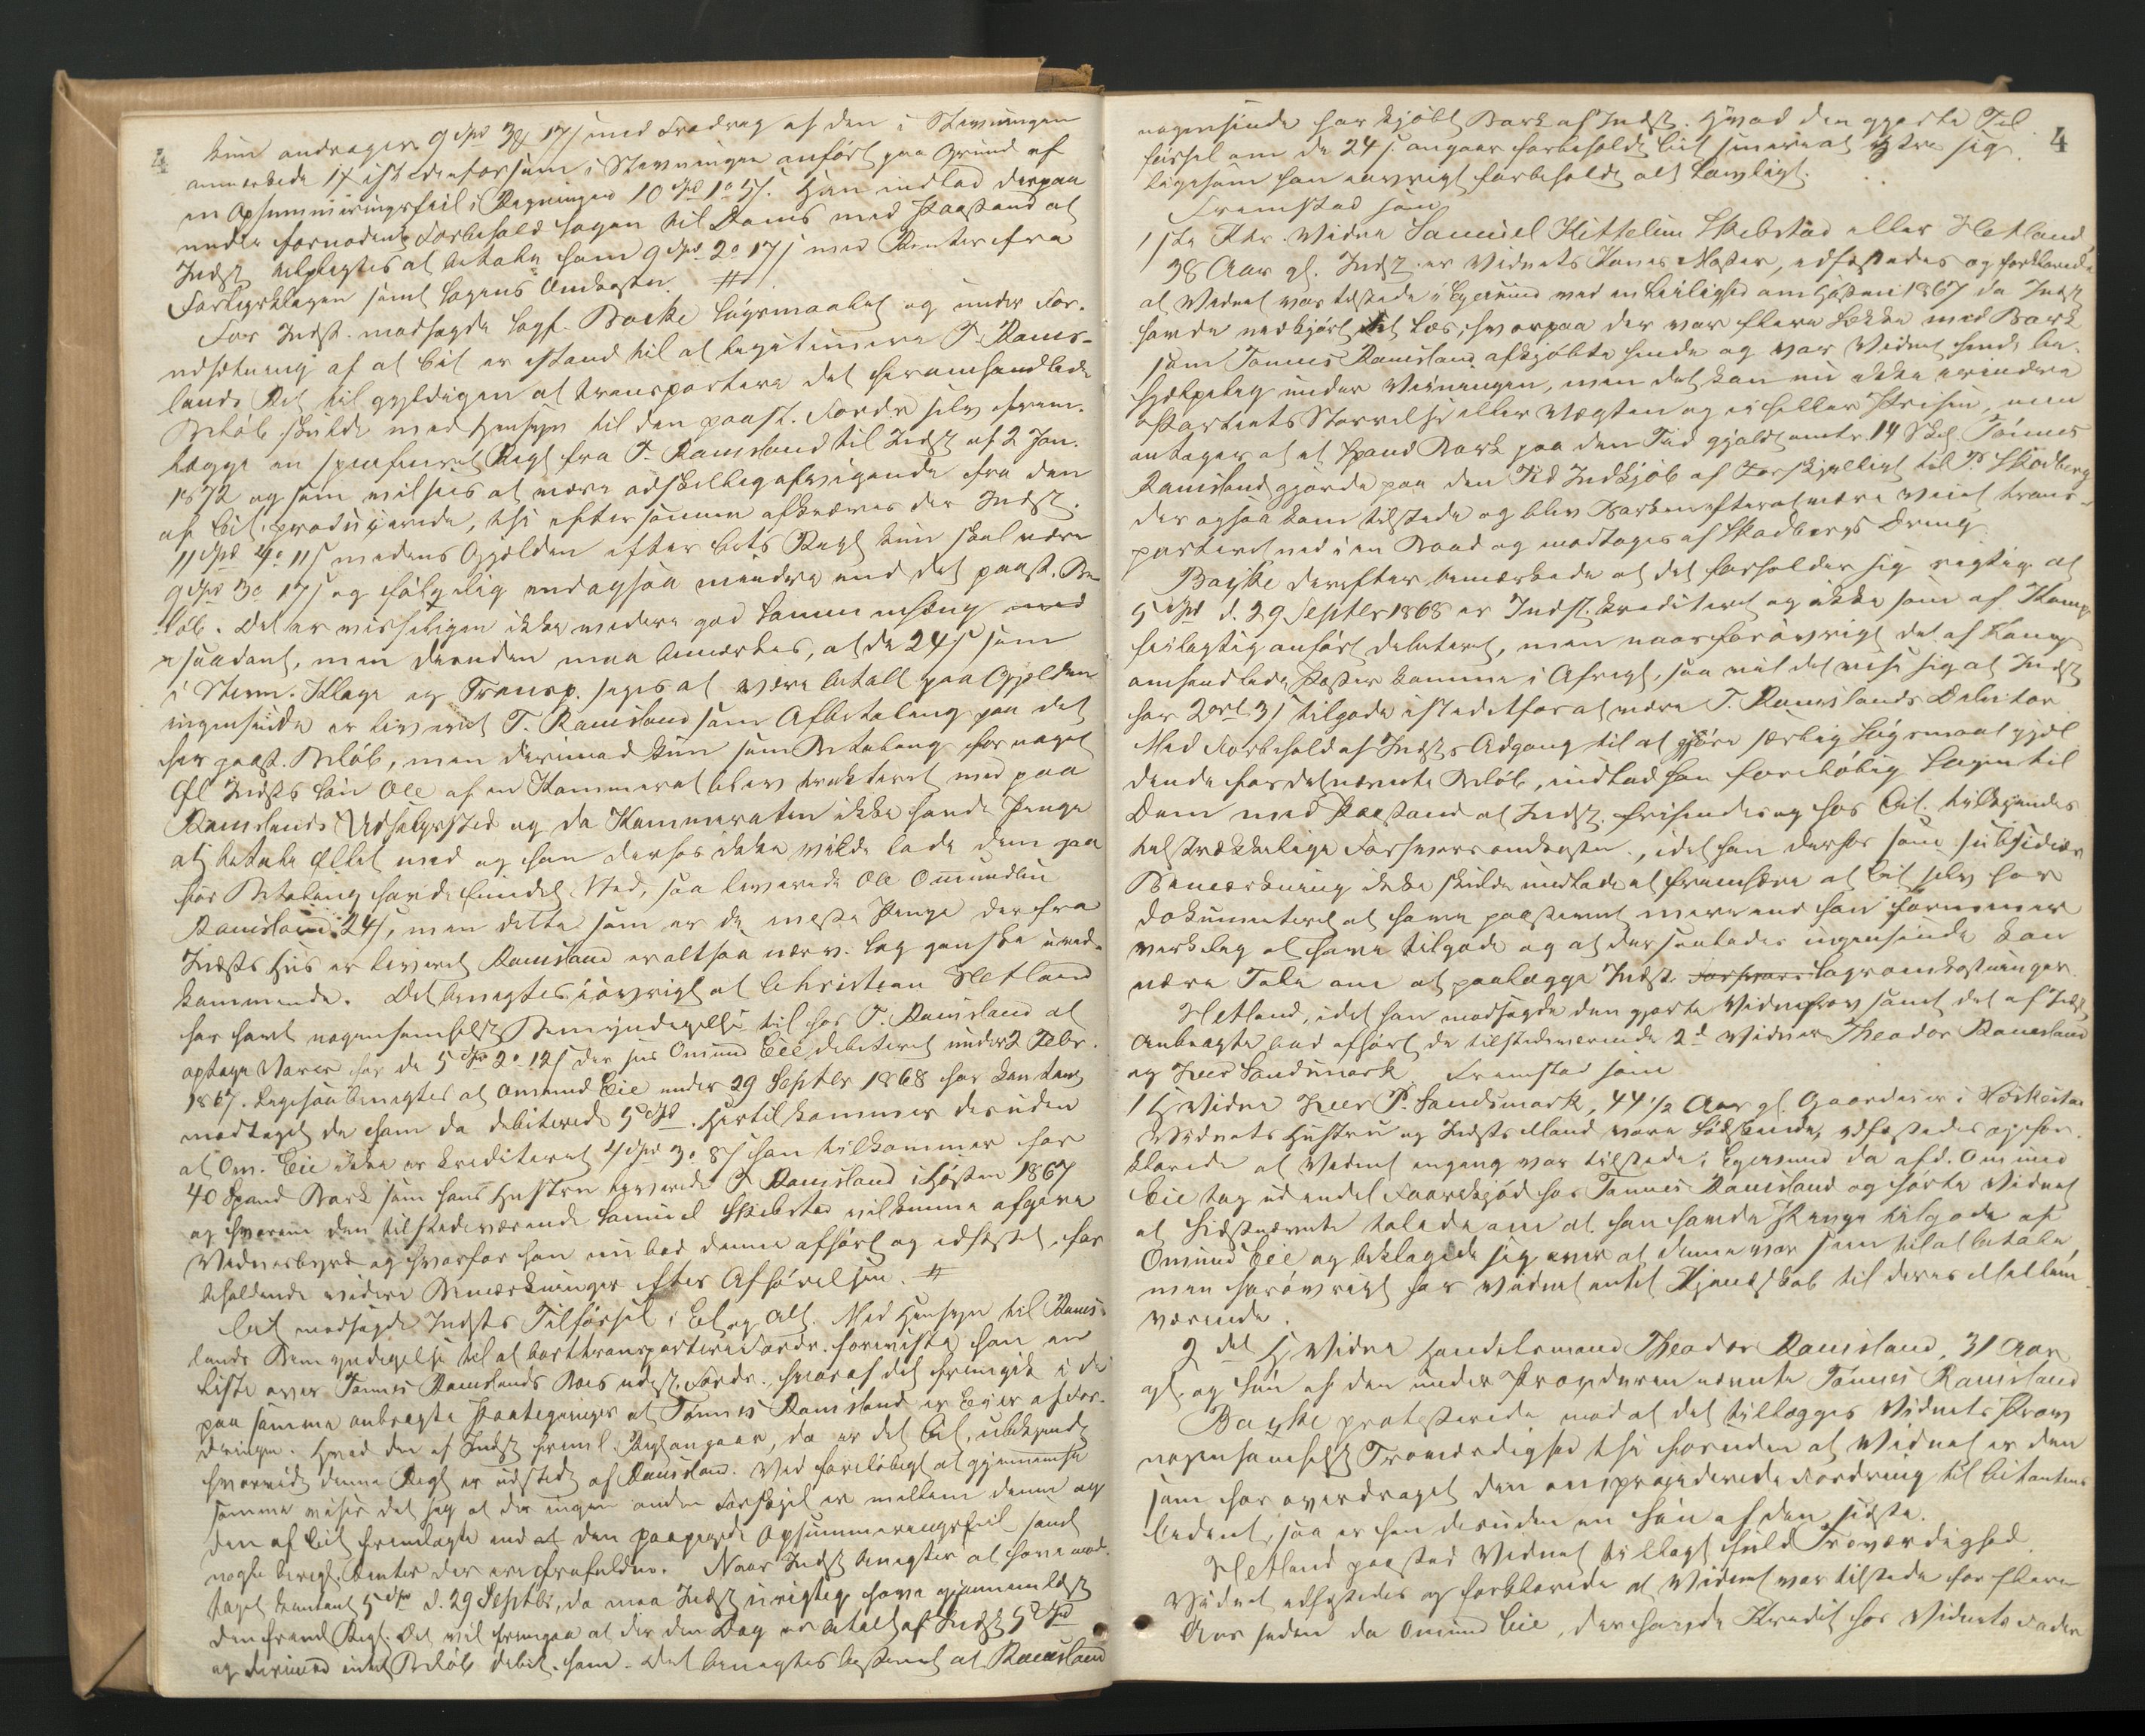 4
kun andrager 9 Spd 3 # 17 s med Fradrag af den i Stevningen
anmærkede 1 # istedenfor som i Stevningen anført paa Grund af
en Opsummeringsfeil i Regningen 10 Spd 1 o 5 s. Han indlod derpaa
under fornødent Forbehold Sagen til Doms med Paastand at
Indst. tilpligtes at betale ham 9 Spd 2 o 17 s med Renter fra
Forligsklagen samt Sagens Omkostn. #
For Indst. modsagde Sagf. Boyke Søgsmaalet og under For-
udsætning af at Cit. er istand til at legitimere T. Raus-
lands Ret til gyldigen at transportere det heromhandlede
Beløb skulde med Hensyn til den paast. Fordr. selv frem-
lægge en specificeret Regn. fra T. Rausland til Indst. af 2 Jan.
1872 og som vil sees at være adskillig afvigende fra den
af Cit. producerede, thi efter samme afkræves der Indst.
11 Spd 4 o 11 s medens Gjælden efter Cits Regn. kun skal være
9 Spd 3 o 17 s og følgelig endogsaa mindre end det paast. Be-
løb. Det er visseligen ikke videre god Sammenhæng med
saadant, men desuden maa bemærkes, at de 24 s som
i Stevn. Klage og Transp. siges at være betalt paa Gjælden
ingensinde er leveret T. Rausland som Afbetaling paa det
her paast. Beløb, men derimod kun som Betaling for noget
Øl Indsts Søn Ole af en Kammerat blev trakteret med paa
Rauslands Udsalgssted og da Kammeraten ikke havde Penge
at betale Øllet med og han derfor ikke vilde lade dem gaa
før Betaling havde fundet Sted, saa leverede Ole Omundsen
Rausland 24 s, men dette som er de meste Penge der fra
Indsts Hus er leveret Rausland er altsaa nærv. Sag ganske uved-
kommende. Det benegtes iøvrigt at Christian Hetland
har havt nogensomhelst Bemyndigelse til hos T. Rausland at
optage Varer for de 5 Spd 2 o 12 s der hos Omund Eie debiteret under 2 Febr.
1867. Ligesaa benegtes at Omund Eie under 29 Septbr 1868 har kontant
modtaget de ham da debiterede 5 Spd. Hertil kommer desuden
at Om. Eie ikke er krediteret 4 Spd 3 o 8 s han tilkommer for
40 Spand Bark som hans Hustru leverede T. Rausland i Høsten 1867
og hvorom den tilstedeværende Samuel Skibstad vil kunne afgive
Vidnesbyrd og hvorfor han nu bad denne afhørt og edfæstet, for-
beholdende videre Bemærkninger efter Afhørelsen. #
Cit. modsagde Indsts Tilførsel i Et og Alt. Med Hensyn til Raus-
lands Bemyndigelse til at borttransportere Fordr. foreviste han en
Liste over Tønnes Rauslands Boes udest. Fordr. hvoraf det fremgik i de
paa samme anbragte Paategninger at Tønnes Rausland er Eier af For-
dringen. Hvad den af Indst. freml. Regn. angaar, da er det Cit. ubekjendt
hvorvidt denne Regn. er udstedt af Rausland. Ved foreløbigt at gjennemse
samme viser det sig at der ingen anden Forskjel er mellem denne og
den af Cit. fremlagte end at den paapegede Opsummeringsfeil samt
nogle beregn. Renter der ere frafaldne. Naar Indst. benegter at have mod-
taget kontant 5 Spd d. 29 Septbr, da maa Indst. urigtig have gjennemlæst
den freml. Regn. Det vil fremgaa at der den Dag er betalt af Indst. 5 Spd
og derimod intet Beløb debit. ham. Det benegtes bestemt at Rausland
4
nogensinde har kjøbt Bark af Indst. Hvad den gjorte Til
førsel om de 24 s. angaar forbeholdt Cit. senere at yttre sig
ligesom han iøvrigt forbeholdt alt Lovligt.
Fremstod som
1ste Ktr. Vidne Samuel Kittelsen Skibstad eller Hetland,
38 Aar gl. Indst. er Vidnets Kones Moster, edfæstedes og forklarede
at Vidnet var tilstede i Egersund ved en Leilighed om Høsten 1867 da Indst.
havde nedkjørt et Læs, hvorpaa der var flere Sække med Bark
som Tønnes Rausland afkjøbte hende og var Vidnet hende be-
hjælpelig under Veiningen, men det kan nu ikke erindre
Partiets Størrelse eller Vægten og ei heller Prisen, men
antager at et Spand Bark paa den Tid gjaldt omtr. 14 Skl. Tønnes
Rausland gjorde paa den Tid Indkjøb af Forskjelligt til P. Skadberg
der ogsaa kom tilstede og blev Barken efterat være veiet trans-
porteret ned i en Baad og modtaget af Skadbergs Dreng.
Boyke derefter bemærkede at det forholder sig rigtig at
5 Spd d. 29 Septbr 1868 er Indst. krediteret og ikke som af Komp.
feilagtig anført debiteret, men naar forøvrigt det af Komp.
omhandlede Poster komme i Afregn., saa vil det vise sig at Indst.
har 2 ort 3 s tilgode istedetfor at være T. Rauslands Debitor.
Med Forbehold af Indsts Adgang til at gjøre særlig Søgsmaal gjæl
dende for det nævnte Beløb, indlod han foreløbig Sagen til
Dom med Paastand at Indst. frifindes og hos Cit. tilkjendes
tilstrækkelige Forsvarsomkostn., idet han derhos som subsidiær
Bemærkning ikke skulde undlade at fremhæve at Cit. selv har
dokumenteret at have paastævnt mere end han formener
virkelig at have tilgode og at der saaledes ingensinde kan
være Tale om at paalægge Indst. Forsvars Sagsomkostninger.
Hetland, idet han modsagde den gjorte Vidneprov samt det af Indst.
Anbragte bad afhørt de tilstedeværende 2de Vidner Theodor Rausland
og Iver Sandsmark. Fremstod som
1 H Vidne Iver P. Sandsmark, 44 1/2 Aar gl. Gaardbruger i Heskestad
Vidnets Hustru og Indsts Mand vare Sødskende, edfæstedes og for-
klarede at Vidnet engang var tilstede i Egersund da afd. Omund
Eie tog ud endel Faarekjød hos Tønnes Rausland og hørte Vidnet
at Sidstnævnte talede om at han havde Penge tilgode af
Omund Eie og beklagede sig over at denne var sen til at betale,
men forøvrigt har Vidnet intet Kjendskab til deres Mellem-
værende.
2det H Vidne Handelsmand Theodor Rausland, 31 Aar
gl. og Søn af den under Proceduren nævnte Tønnes Rausland
Boyke protesterede mod at det tillægges Vidnets Prov
nogensomhelst Troværdighed thi foruden at Vidnet er den
som har overdraget den omprocederede Fordring til Citantens
Cedent, saa er han desuden en Søn af den sidste.
Hetland paastod Vidnet tillagt fuld Troværdighed.
Vidnet edfæstedes og forklarede at Vidnet var tilstede for flere
Aar siden da Omund Eie, der havde Kredit hos Vidnets Fader